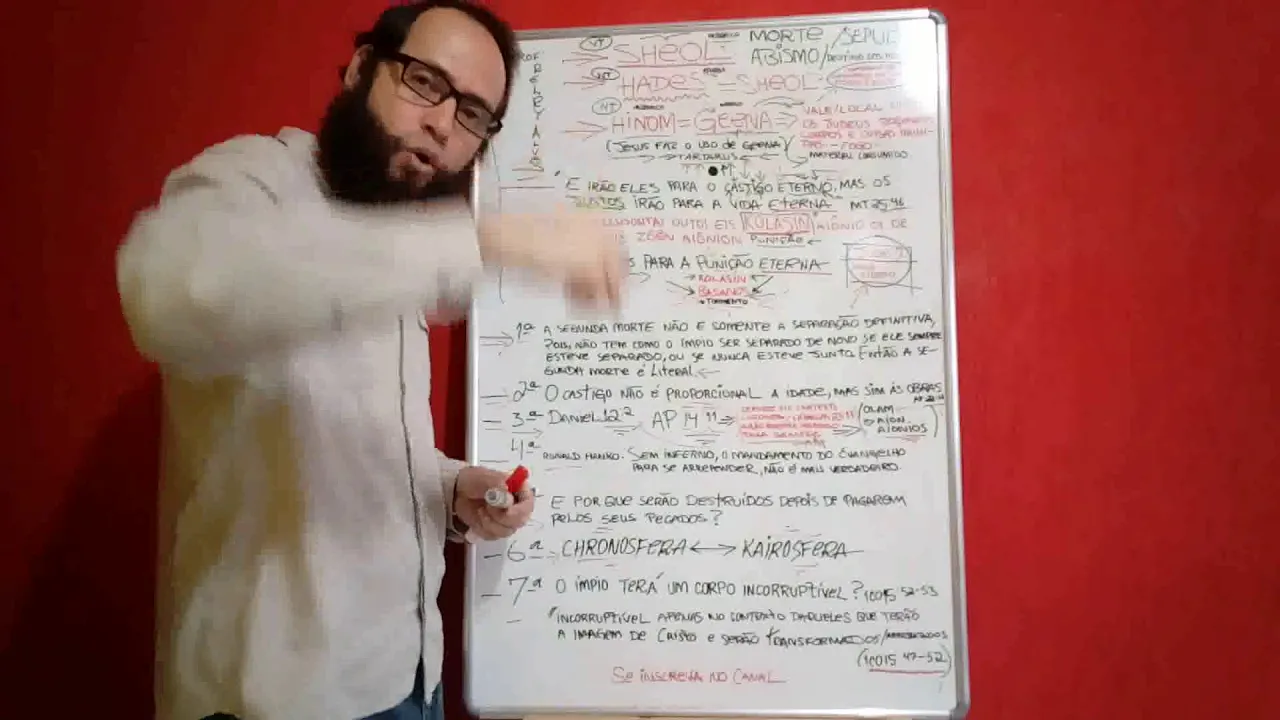 VT SHEOL MORTE /SEPUL
ABISMO/
NT HADES = SHEOL
NT HINOM = GEENA VALE/LOCAL
OS JUDEUS
CORPOS E
FOGO
(JESUS FAZ O USO DE GEENA) MATERIAL CONSUMIDO
TARTARUS
PROF RELRY ALVES
"E IRÃO ELES PARA O CASTIGO ETERNO, MAS OS
JUSTOS IRÃO PARA A VIDA ETERNA" MT 25:46
OUTOI EIS KOLASIN AIÔNIO OI DE
ZOEN AIÔNION PUNIÇÃO
S PARA A PUNIÇÃO ETERNA
KOLASIN
BASANOS
TORMENTO
1ª A SEGUNDA MORTE NÃO E SOMENTE A SEPARAÇÃO DEFINITIVA,
POIS, NÃO TEM COMO O ÍMPIO SER SEPARADO DE NOVO SE ELE SEMPRE
ESTEVE SEPARADO, OU SE NUNCA ESTEVE JUNTO. ENTÃO A SE-
GUNDA MORTE É LITERAL
2ª O CASTIGO NÃO É PROPORCIONAL A IDADE, MAS SIM ÁS OBRAS
3ª DANIEL 12 2 AP 14 11 OLAM
AION
AIONIOS
4ª RONALD HANKO. SEM INFERNO, O MANDAMENTO DO EVANGELHO
PARA SE ARREPENDER, NÃO É MAIS VERDADEIRO
E POR QUE SERÃO DESTRUÍDOS DEPOIS DE PAGAREM
PELOS SEUS PECADOS?
6ª CHRONOSFERA KAIROSFERA
7ª O ÍMPIO TERÁ UM CORPO INCORRUPTÍVEL? 1CO15 52-53
"INCORRUPTÍVEL APENAS NO CONTEXTO DAQUELES QUE TERÃO
A IMAGEM DE CRISTO E SERÃO TRANSFORMADOS/
(1CO15 47-52)
SE INSCREVA NO CANAL